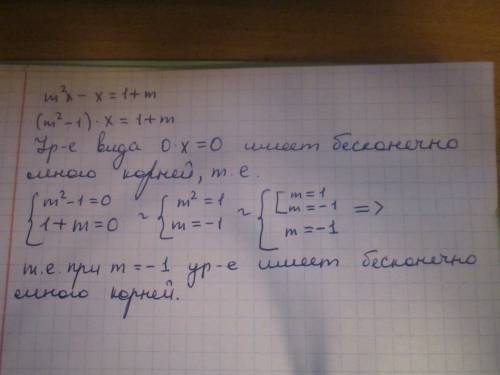 m²x - x = 1 + m
(m² - 1) · x = 1 + m
Ур-е вида 0 · x = 0 имеет бесконечно
много корней, т.е.
{ m² - 1 = 0 ~ { m² = 1 ~ { [ m = 1
m = -1 =>
1 + m = 0 m = -1 m = -1
т.е. при m = -1 ур-е имеет бесконечно
много корней.